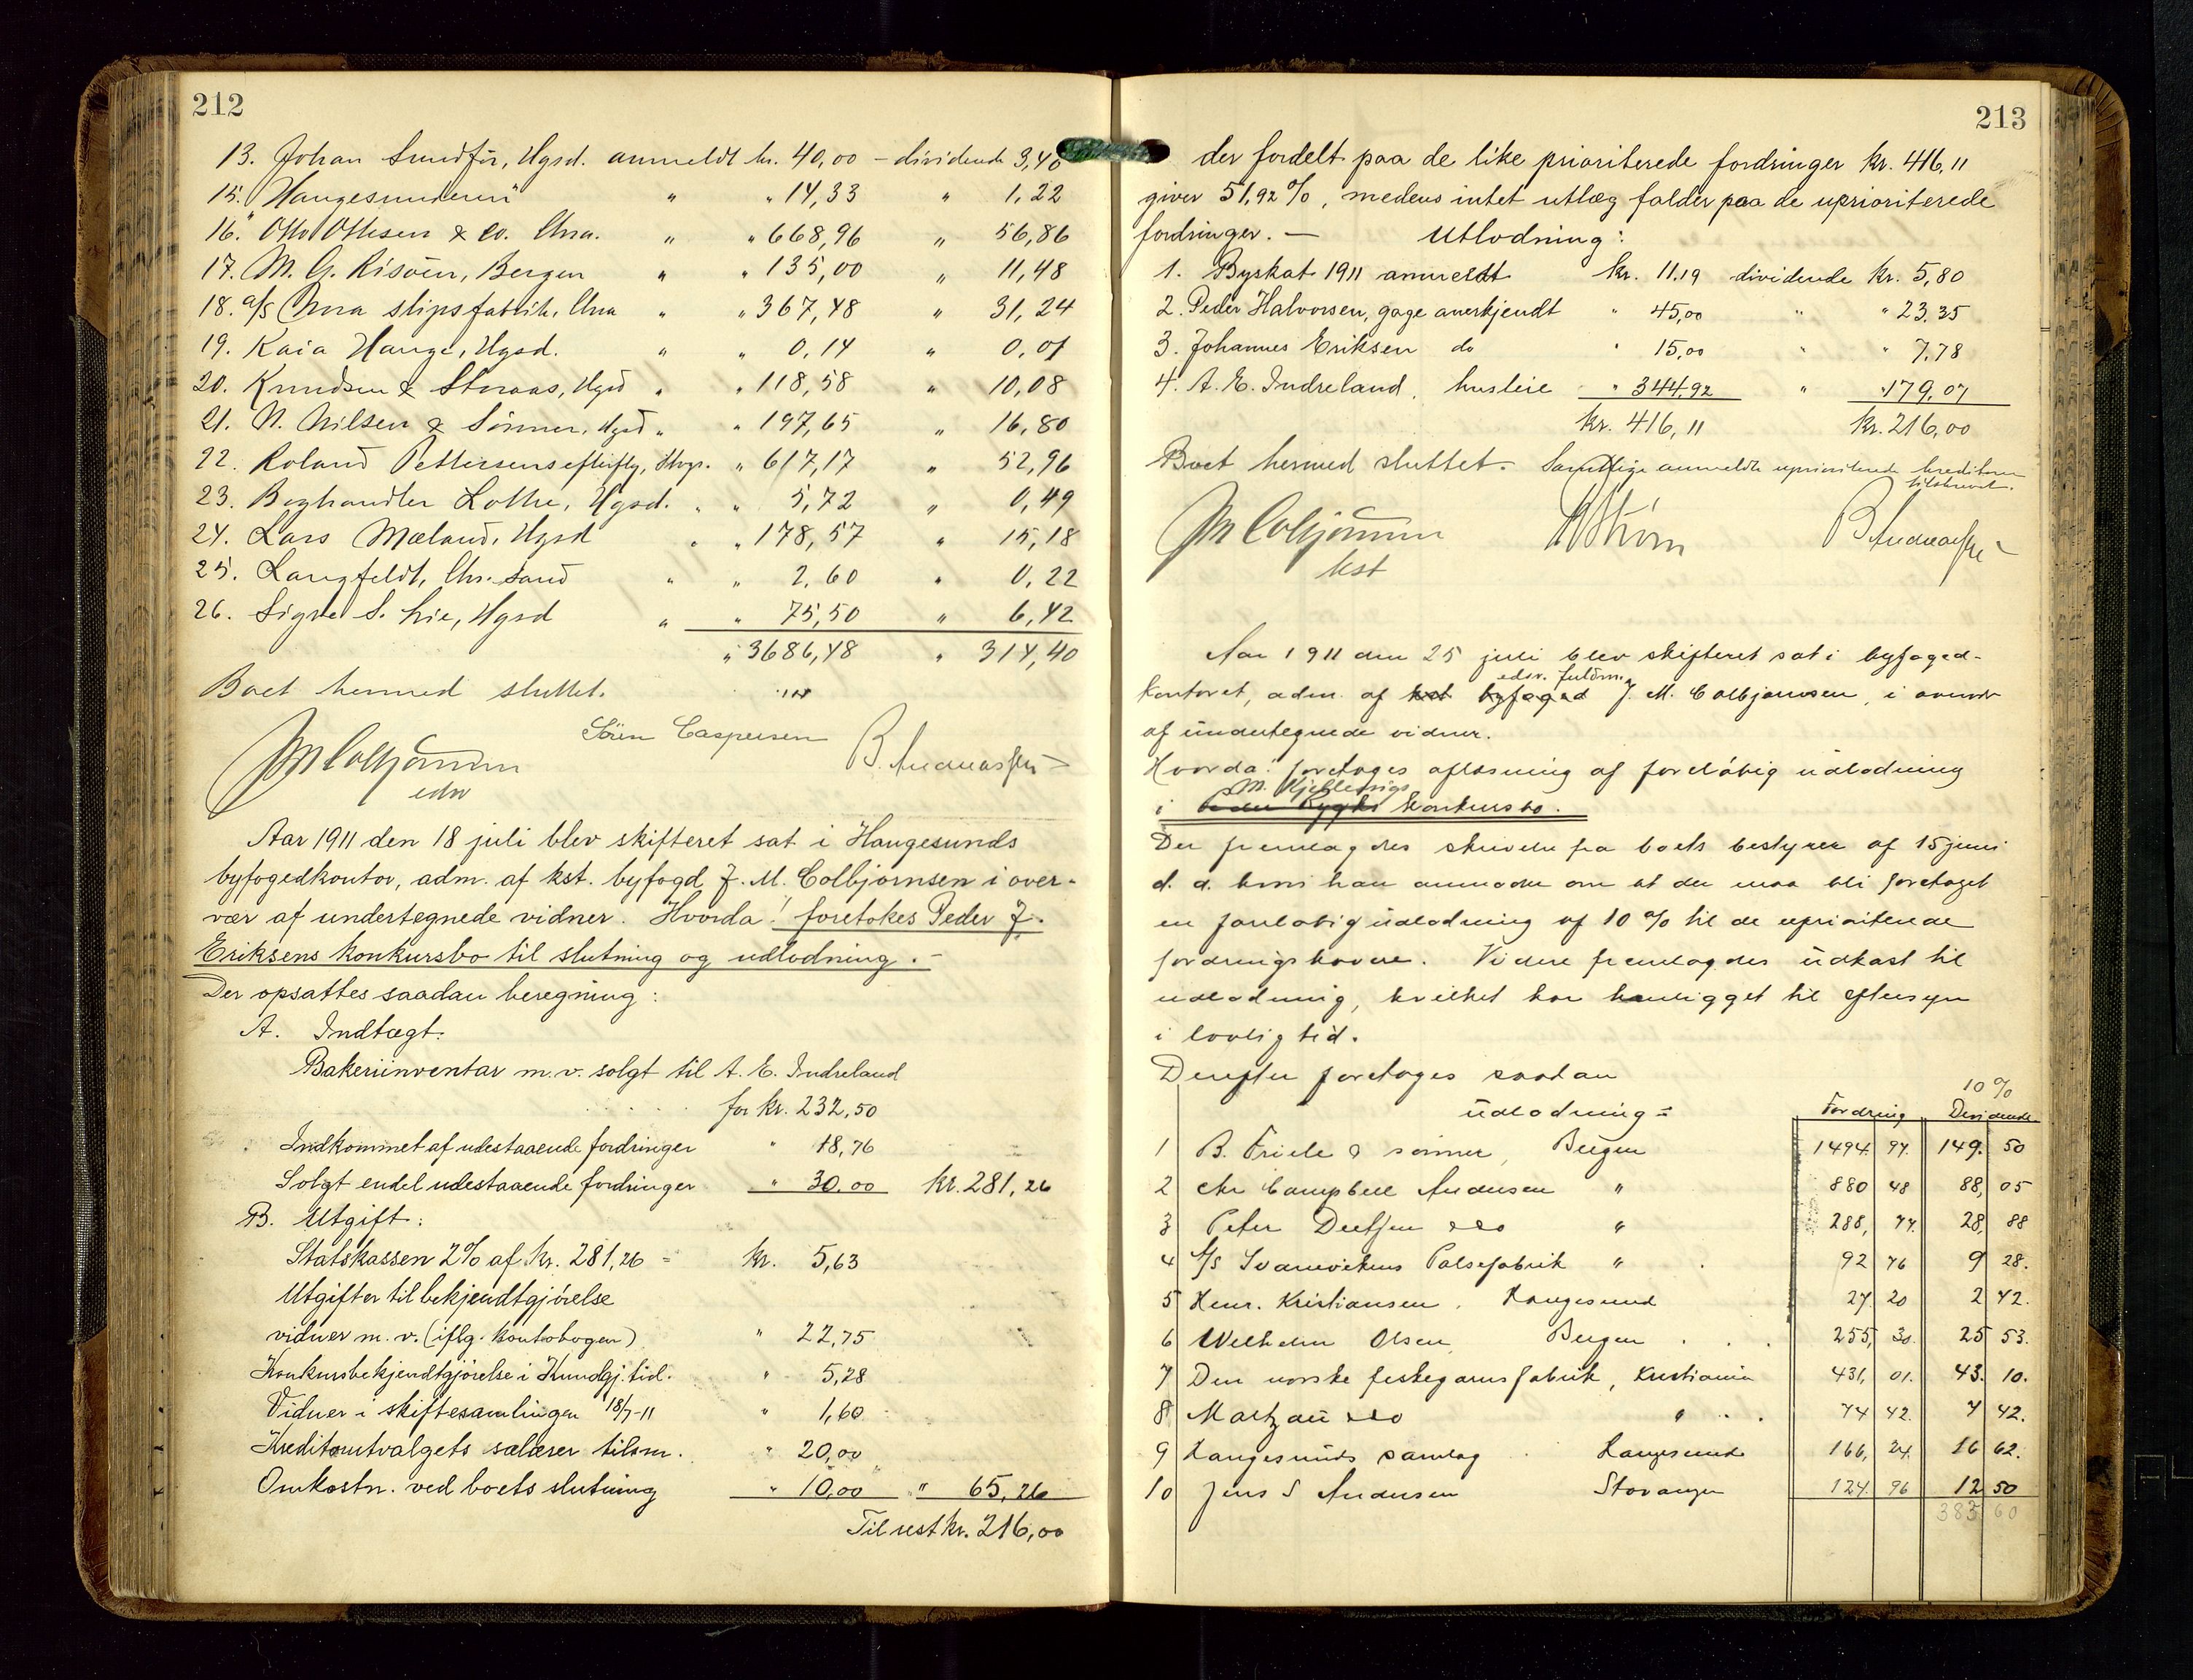 212
13. Johan Sundför, Hgsd. anmeldt kr. 40,00 – dividende 3,40
15. "Haugesunderen" " " 14,33 " 1,22
16. Otto Ottesen & Co. Chra. " " 668,96 " 56,86
17. M. G. Risöen, Bergen " " 135,00 " 11,48
18. a/s Chra slipsfabrik, Chra " " 367,48 " 31,24
19. Kaia Hauge, Hgsd. " " 0,14 " 0,01
20. Knudsen & Staaas, Hgsd " " 118,58 " 10,08
21. N. Nilsen & Sönner, Hgsd " " 197,65 " 16,80
22. Roland Pettersens efterflg, Hvgs. " 617,17 " 52,96
23. Boghandler Lothe, Hgsd. " " 5,72 " 0,49
24. Lars Mæland, Hgsd " " 178,57 " 15,18
25. Langfeldt, Chr. sand " " 2,60 " 0,22
26. Signe S. Lie, Hgsd " " 75,50 " 6,42
" 3686,48 " 314,40
Boet hermed sluttet.
J M Colbjörnsen Sören Caspersen B. Andreassen
edsv
Aar 1911 den 18 juli blev skifteret sat i Haugesunds
byfogedkontor, adm. af kst. byfogd J. M. Colbjørnsen i over-
vær af undertegnede vidner. Hvorda! foretokes Peder J.
Eriksens konkursbo til slutning og udlodning. –
Der opsattes saadan beregning:
A. Indtægt:
Bakeriinventar m.v. solgt til A. E. Indreland
for kr. 232,50
Indkommet af udestaaende fordringer " 18,76
Solgt endel udestaaende fordringer " 30,00 kr. 281,26
B. Utgift:
Statskassen 2% af kr. 281,26 = kr. 5,63
Utgifter til bekjendtgjörelse
vidner m. v. (iflg. kontobogen) " 22,75
Konkursbekjendtgjörelse i Kundgj. tid. " 5,28
Vidner i skiftesamlingen 18/7-11 " 1,60
Kreditorutvalgets salærer tilsm. " 20,00
Omkostn. ved boets slutning " 10,00 " 65,26
Til rest kr. 216,00
213
der fordelt paa de like prioriterede fordringer kr. 416,11
giver 51,92 %, medens intet utlæg falder paa de uprioriterede
fordringer. — Utlodning:
1. Byskat 1911 anmeldt kr. 11.19 dividende kr. 5,80
2. Peder Halvorsen, gage anerkjendt " 45,00 " " 23.35
3. Johannes Eriksen do " 15,00 " " 7,78
4. A. E. Indreland, husleie " 344,92 " " 179,07
kr. 416,11 kr. 216,00
Boet hermed sluttet. Samtlige anmeldte uprioriterede kreditorer
tilskrevet.
J M Colbjörnsen HStrøm B. Andreassen
kst
Aar 1911 den 25 juli blev skifteret sat i byfoged-
edsv. fuldm.
kontoret, adm. af kst byfoged J. M. Colbjørnsen, i overvær
af undertegnede vidner.
Hvorda! foretoges aflæsning af foreløbig udlodning
M. Kjeblevigs
i Peder Rygh's konkursbo.
Der fremlagdes skrivelse fra boets bestyrer af 15 juni
d. a. hvori han anmoder om at der maa bli foretaget
en foreløbig udlodning af 10 % til de uprioriterede
fordringshavere. Videre fremlagdes udkast til
udlodning, hvilket har henligget til eftersyn
i lovlig tid.
Derefter foretoges saadan
udlodning = Fordring 10 % Dividende
1 B. Friele & sønner, Bergen 1494. 97. 149. 50
2 Chr Campbell Andersen " 880 48 88, 05
3 Peter Deetjen & Co " 288, 77. 28 88
4 A/S Svanevikens Pølsefabrik " 92 76 9 28.
5 Henr. Kristiansen, Haugesund 24 20 2 42.
6 Wilhelm Olsen, Bergen 255, 30. 25 53.
7 Den norske fiskegarnsfabrik, Kristiania 431, 01. 43. 10.
8 Maltzau & Co " 74 42. 7 42.
9 Haugesunds samlag Haugesund 166, 24. 16 62.
10 Jens S Andersen Stavanger 124. 96 12 50
383 60